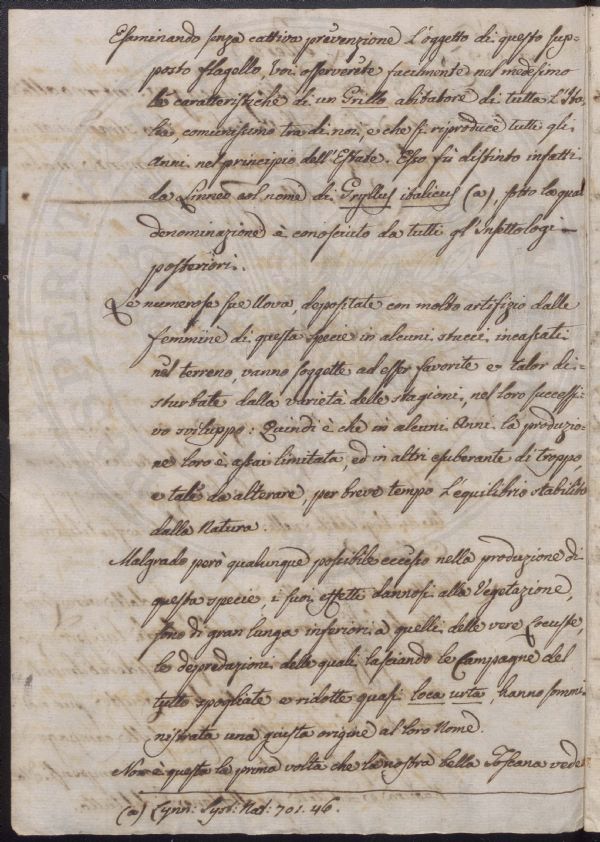 Esaminando senza cattiva prevenzione l'oggetto di questo sup=
posto flagello, Voi osserverete facilmente nel medesimo
le caratteristiche di un Grillo abitatore di tutta l'Ita=
lia, comunissimo tra di noi, e che si riproduce tutti gli
Anni nel principio dell'Estate. Esso fù distinto infatti
da Linneo col nome di Gryllus italicus (a), sotto la qual
denominazione è conosciuto da tutti gl'Insettologi
posteriori.
Le numerose sue Uova, depositate con molto artifizio dalle
femmine di questa specie in alcuni stucci incassati
nel terreno, vanno soggette ad esser favorite e talor di=
sturbate dalla varietà delle stagioni, nel loro successi=
vo sviluppo: Quindi è che in alcuni Anni la produzio=
ne loro è assai limitata, ed in altri esuberante di troppo,
e tale da alterare, per breve tempo l'equilibrio stabilito
dalla Natura.
Malgrado però qualunque possibile eccesso nella produzione di
questa specie, i suoi effetti dannosi alla Vegetazione,
sono di gran lunga inferiori a quelli delle vere Locuste,
le depredazioni delle quali lasciando le Campagne del
tutto spogliate e ridotte quasi loca usta, hanno sommi
nistrata una giusta origine al loro Nome.
Non è questa la prima volta che la nostra bella Toscana vede
(a) Lynn: Syst: Nat: 701. 46.